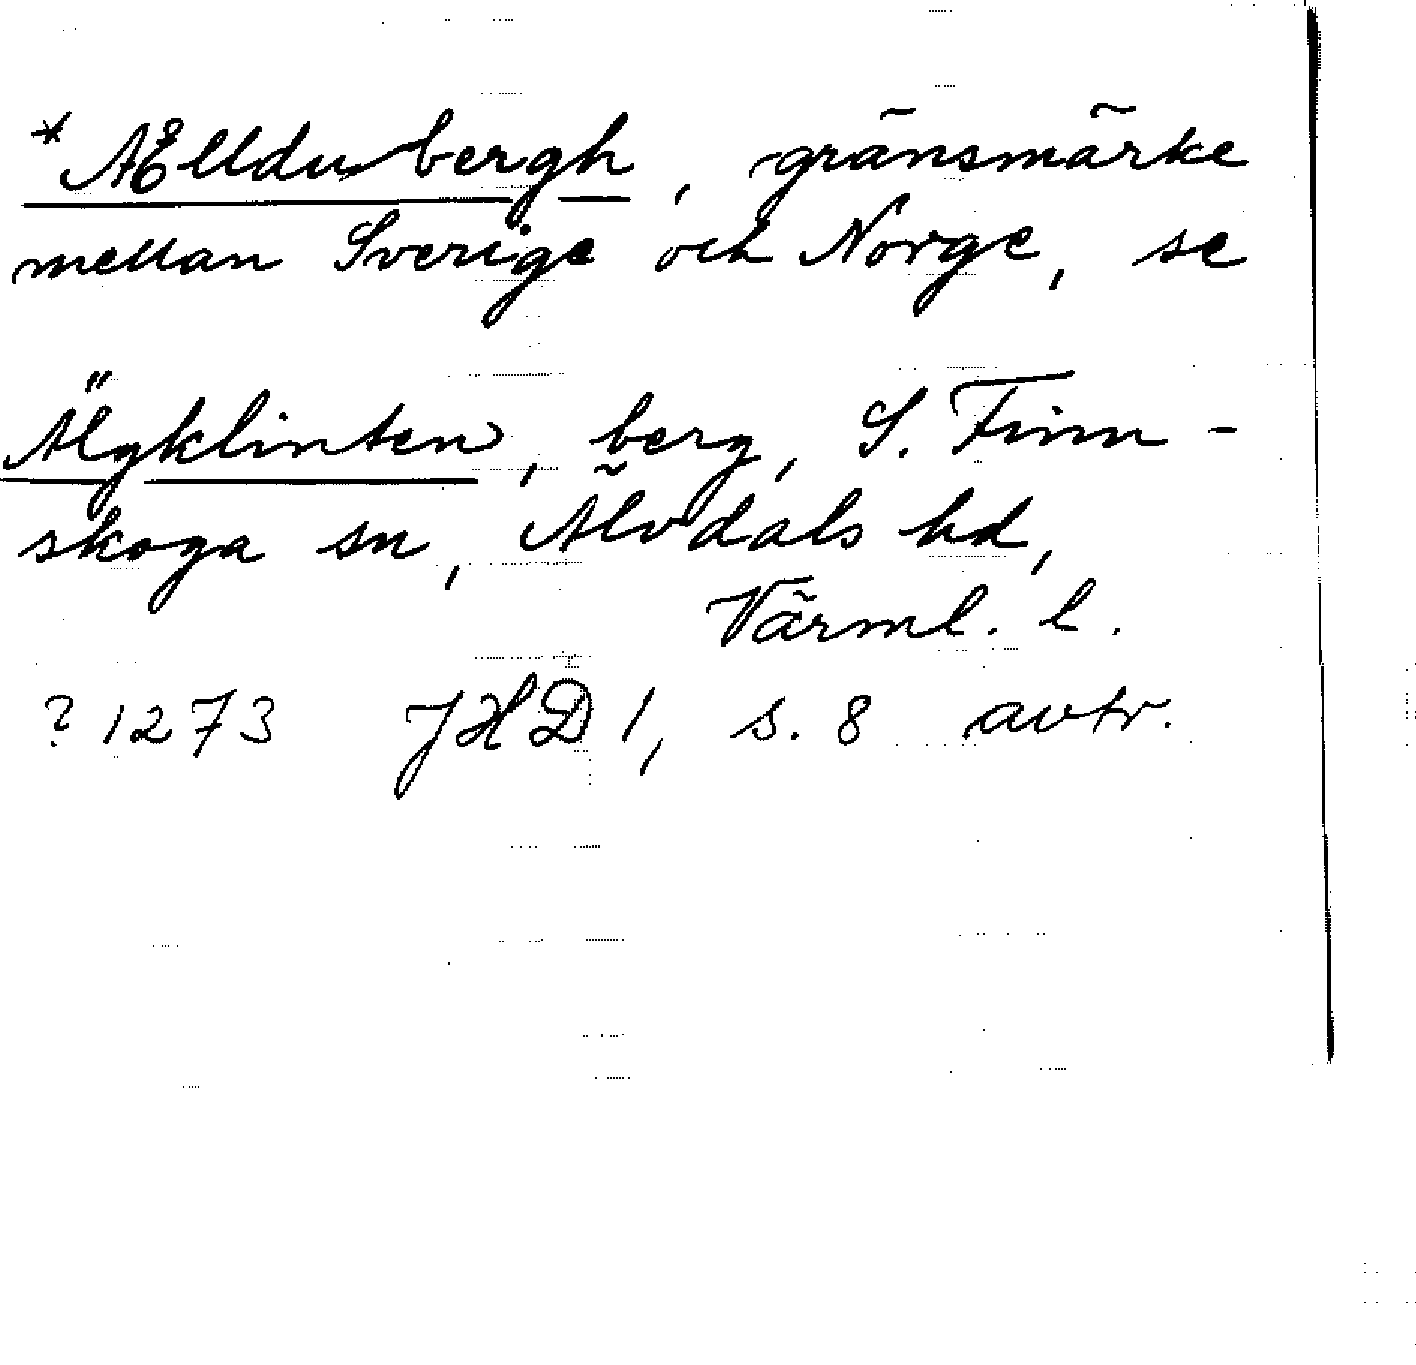 *Ælldubergh, gränsmärke
mellan Sverige och Norge, se
Älgklinten, berg, S. Finn-
skoga sn, Älvdals hd,
Värml. l.
? 1273 JHD 1, s. 8 avtr.